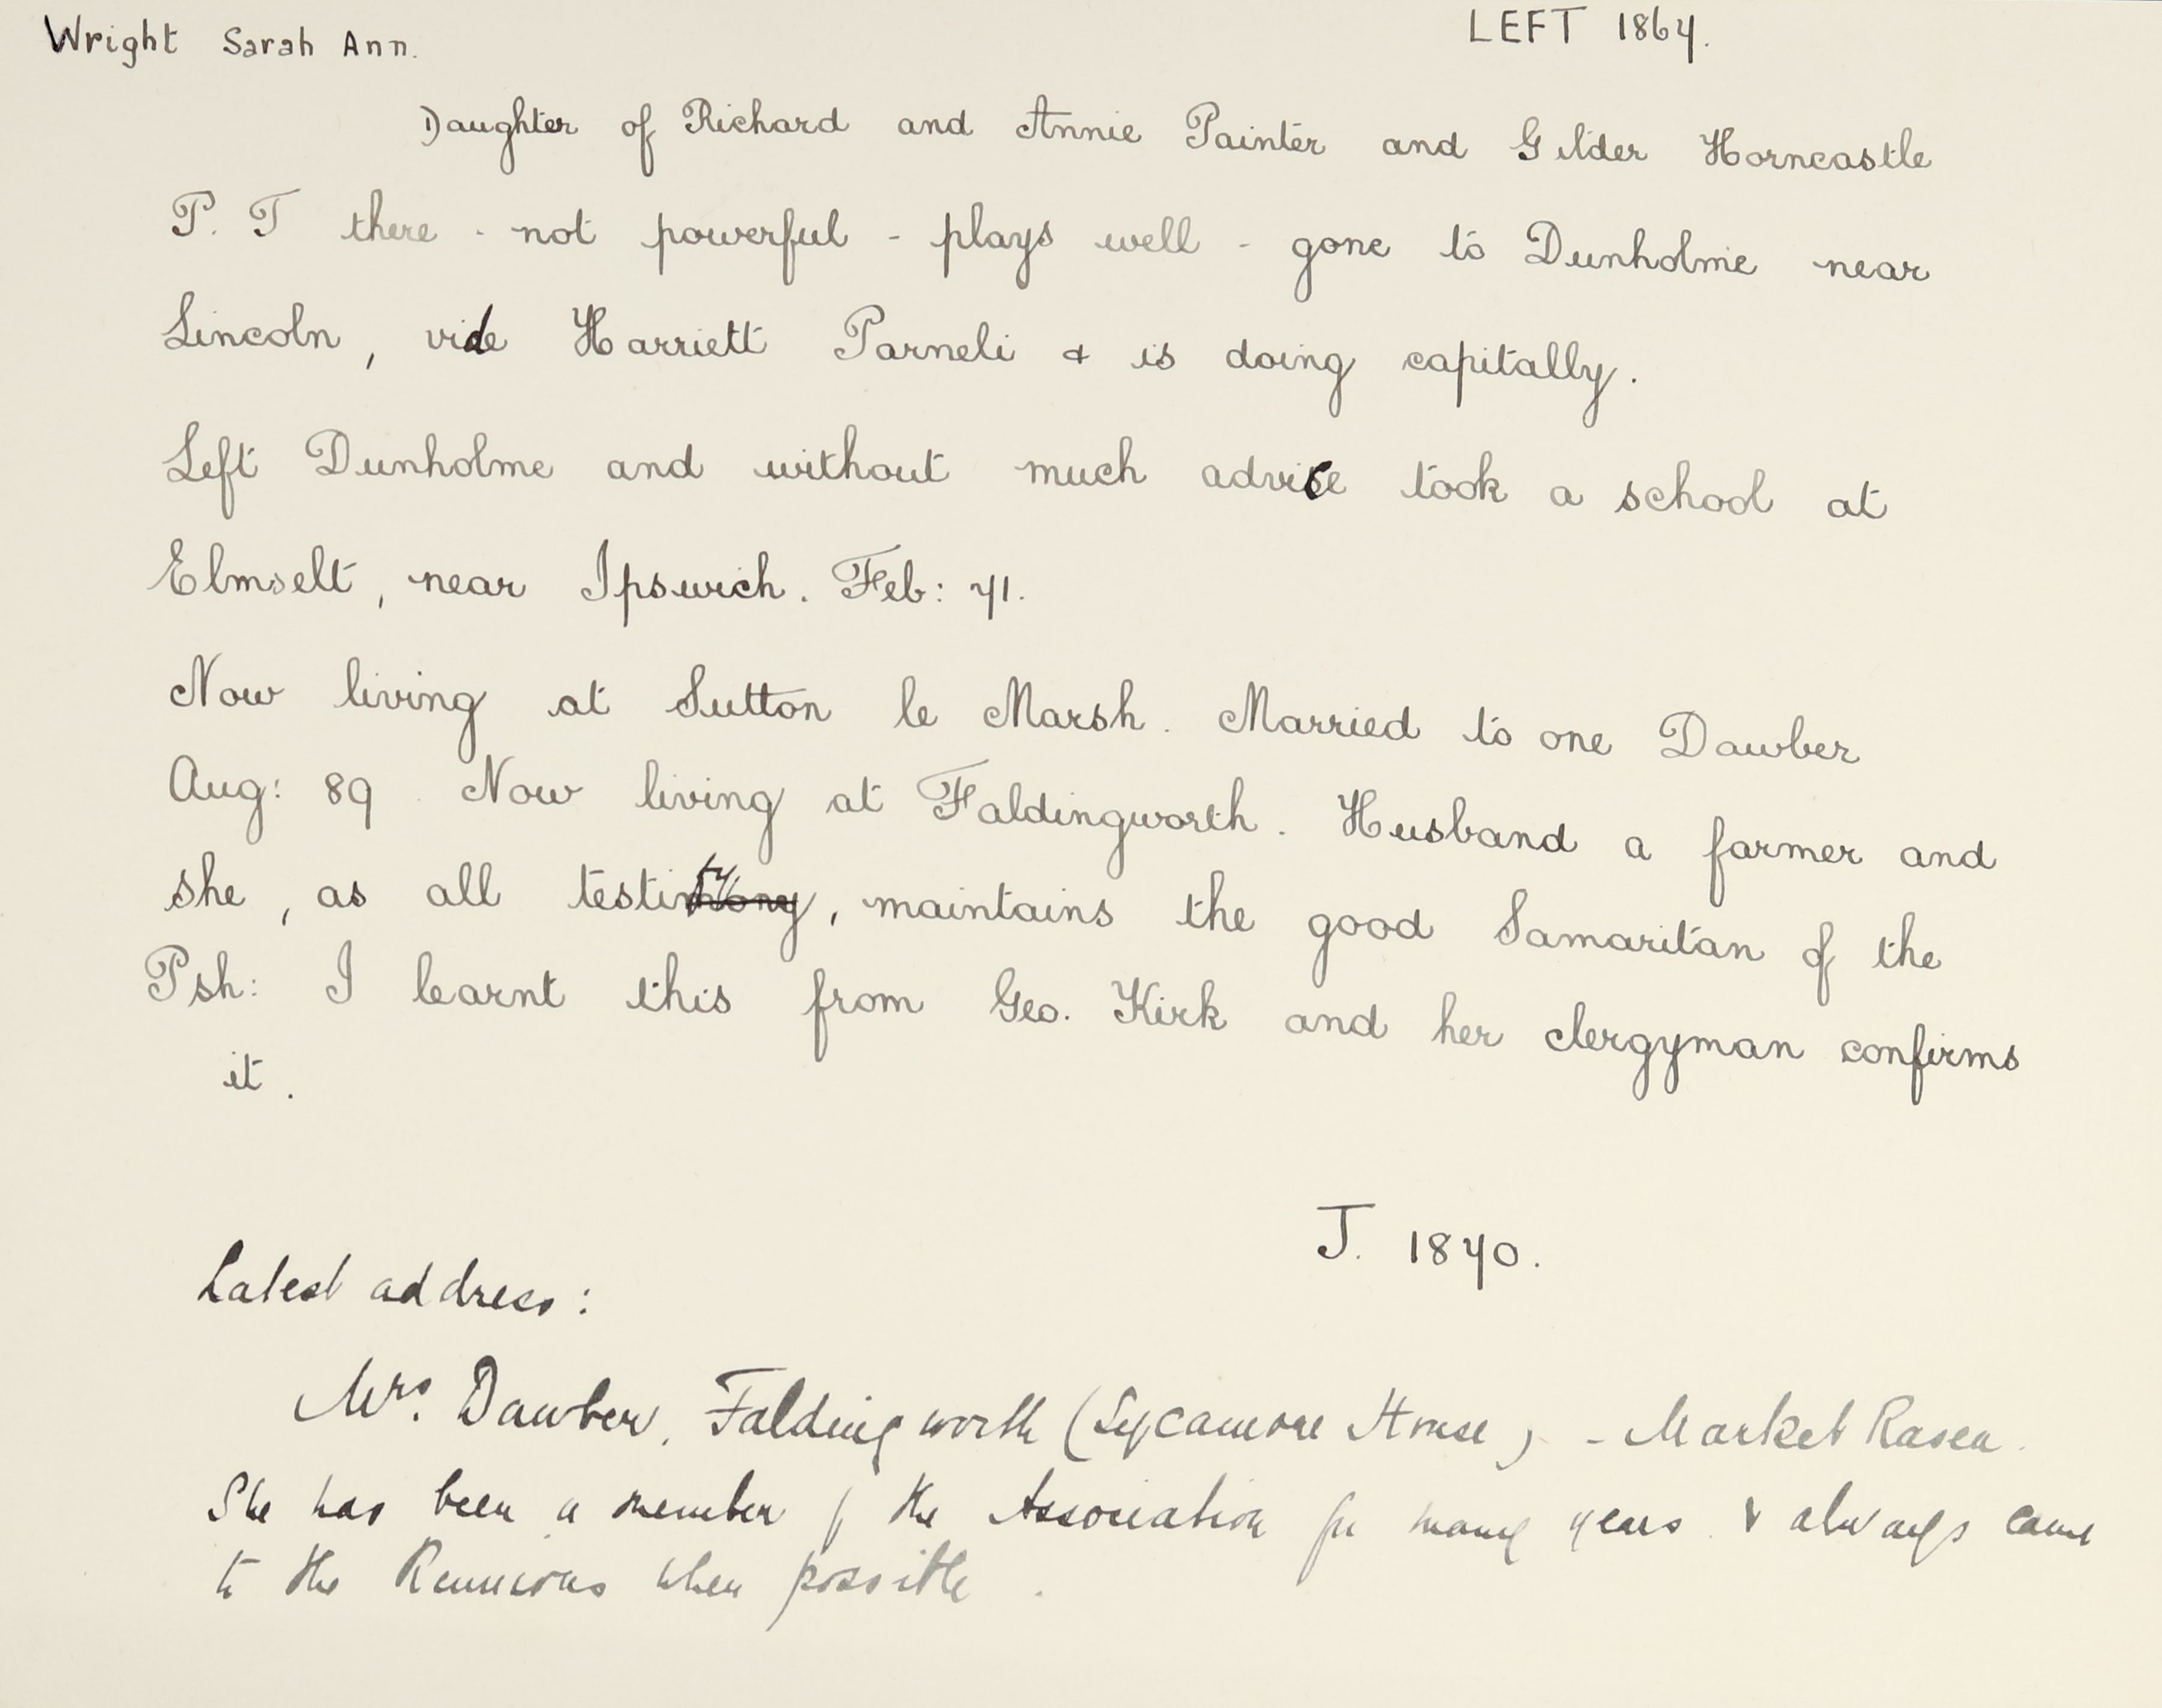 Wright Sarah Ann. LEFT 1867.
Daughter of Richard and Annie Painter and Gilder Horncastle
P. T there - not powerful - plays well - gone to Dunholme near
Lincoln, vide Harriett Parneli & is doing capitally.
Left Dunholme and without much advice took a school at
Elmselt, near Ipswich. Feb: 71.
Now living at Sutton le Marsh. Married to one Dawber
Aug: 89. Now living at Faldingworth. Husband a farmer and
she, as all testify, maintains the good Samaritan of the
Psh: I learnt this from Geo. Kirk and her clergyman confirms
it.
J. 1870.
Latest address:
Mrs. Dawber, Faldingworth (Sycamore House) - Market Rasen.
She has been a member of the Association for many years & always came
to the Reunions when possible.